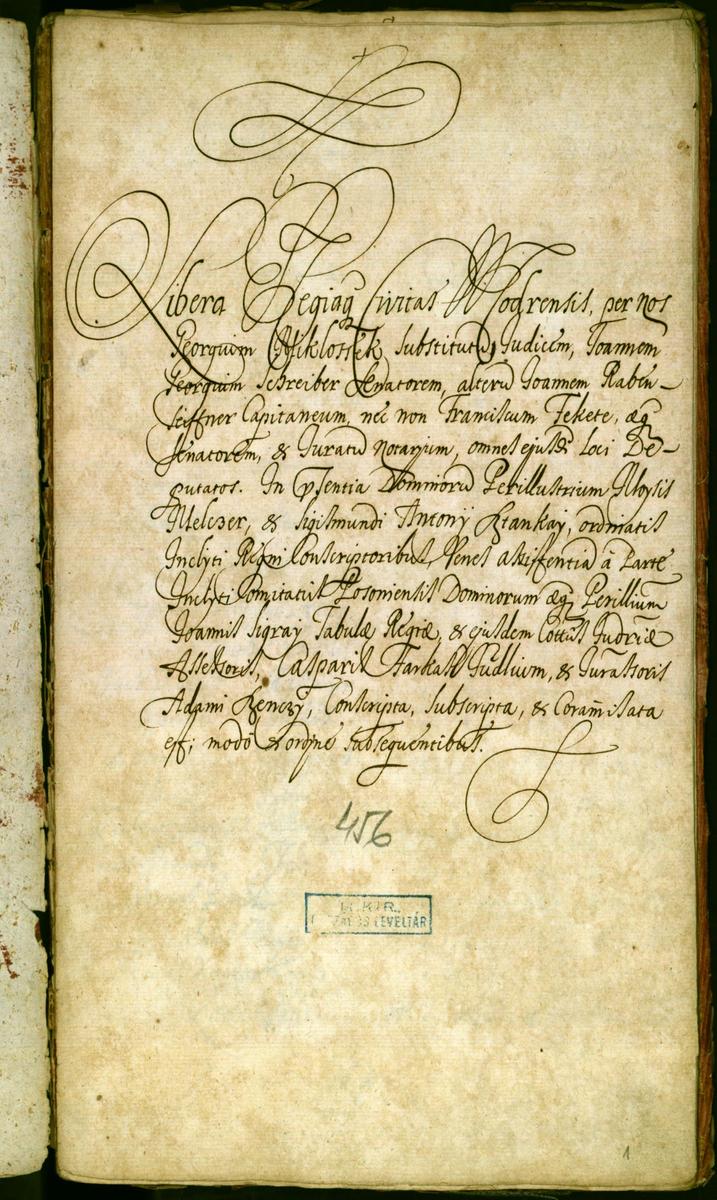 Libera Regiaq Civitas Modrensis, per nos
Georgium Miklossek substitutū Judicem, Joannem
Georgium Schreiber Senatorem, alterū Joannem Raben-
seiffner Capitaneum, nec non Franciscum Fekete, æq
Senatorem, & Juratū Notarium, omnes ejusdē Loci De-
putatos. In Psentia Dominorū Perillustrium Aloysis
Melczer, & Sigismundi Antonÿ Sztankaÿ, ordinatis
Inclyti Regni Conscriptoribus, Penes assistentiā à Parte
Inclyti Comitatus Posoniensis Dominorum æq Perillium̄
Joannis Sigraÿ Tabulæ Regiæ, & ejusdem Cottūs Judriæ
Assessoris, Casparis Farkas Judlium, & Jurassoris
Adami Benczÿ, Conscripta, Subscripta, & Coram̄isata
est; modō & ordine subsequentibus.
456
M. KIR.
ORSZÁGOS LEVÉLTÁR
1